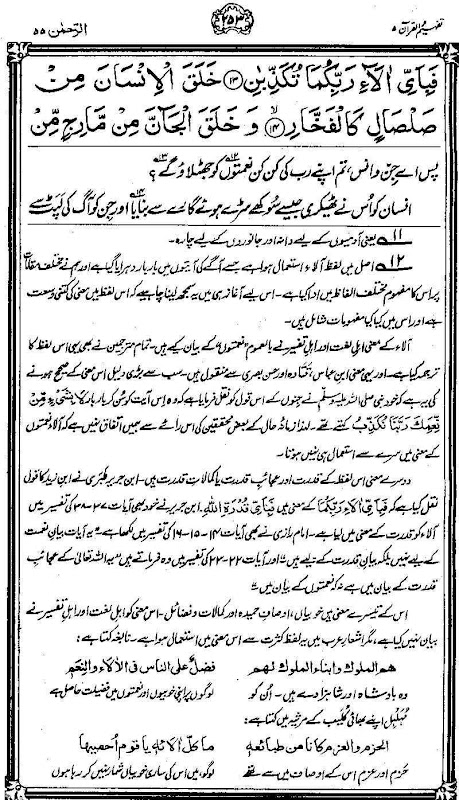 تفہیم القرآن ۵
۲۵۳
الرحمٰن ۵۵
فَبِاَیِّ اٰلَآءِ رَبِّکُمَا تُکَذِّبٰنِ ۱۳ خَلَقَ الْاِنْسَانَ مِنْ
صَلْصَالٍ کَالْفَخَّارِ ۱۴ وَ خَلَقَ الْجَآنَّ مِنْ مَّارِجٍ مِّنْ
پس اے جِن و انس، تم اپنے رب کی کن کن نعمتوں کو جھٹلاؤ گے؟
انسان کو اُس نے ٹھیکری جیسے سُوکھے سڑے ہوئے گارے سے بنایا اور جن کو آگ کی لپٹ سے
۱۱ یعنی آدمیوں کے لیے دانہ اور جانوروں کے لیے چارہ۔
۱۲ اصل میں لفظ آلاء استعمال ہوا ہے جسے آگے کی آیتوں میں بار بار دہرایا گیا ہے اور ہم نے مختلف مقامات
پر اس کا مفہوم مختلف الفاظ میں ادا کیا ہے۔ اس لیے آغاز ہی میں یہ سمجھ لینا چاہیے کہ اس لفظ میں کتنی وسعت
ہے اور اس میں کیا کیا مفہومات شامل ہیں۔
آلاء کے معنی اہلِ لغت اور اہلِ تفسیر نے بالعموم ”نعمتوں“ کے بیان کیے ہیں۔ تمام مترجمین نے بھی یہی اس لفظ کا
ترجمہ کیا ہے۔ اور یہی معنی ابن عباس، قتادہ اور حسن بصری سے منقول ہیں۔ سب سے بڑی دلیل اس معنی کے صحیح ہونے
کی یہ ہے کہ خود نبی صلی اللہ علیہ وسلم نے جنوں کے اس قول کو نقل فرمایا ہے کہ وہ اس آیت کو سُن کر بار بار لَا بِشَیْءٍ مِّنْ
نِّعَمِکَ رَبَّنَا نُکَذِّبُ کہتے تھے۔ لہٰذا زمانۂ حال کے بعض محققین کی اس رائے سے ہمیں اتفاق نہیں ہے کہ آلاء نعمتوں
کے معنی میں سرے سے استعمال ہی نہیں ہوتا۔
دوسرے معنی اس لفظ کے قدرت اور عجائبِ قدرت یا کمالاتِ قدرت ہیں۔ ابن جریر طبری نے ابن زید کا قول
نقل کیا ہے کہ فَبِاَیِّ اٰلَآءِ رَبِّکُمَا کے معنی ہیں فَبِاَیِّ قُدْرَۃِ اللہِ۔ ابن جریر نے خود بھی آیات ۳۷-۳۸ کی تفسیر میں
آلاء کو قدرت کے معنی میں لیا ہے۔ امام رازی نے بھی آیات ۱۴-۱۵-۱۶ کی تفسیر میں لکھا ہے۔ ”یہ آیات بیانِ نعمت
کے لیے نہیں بلکہ بیانِ قدرت کے لیے ہیں“ اور آیات ۲۲-۲۳ کی تفسیر میں وہ فرماتے ہیں ”یہ اللہ تعالیٰ کے عجائبِ
قدرت کے بیان میں ہے نہ کہ نعمتوں کے بیان میں“
اس کے تیسرے معنی ہیں خوبیاں، اوصافِ حمیدہ اور کمالات و فضائل۔ اس معنی کو اہلِ لغت اور اہلِ تفسیر نے
بیان نہیں کیا ہے، مگر اشعارِ عرب میں یہ لفظ کثرت سے اس معنی میں استعمال ہوا ہے۔ نابغہ کہتا ہے:
ھم الملوک و ابناء الملوک لھم فضلٌ علی الناس فی الاٰلاء والنِّعَم
وہ بادشاہ اور شاہزادے ہیں۔ اُن کو لوگوں پر اپنی خوبیوں اور نعمتوں میں فضیلت حاصل ہے
مُہَلہِل اپنے بھائی کُلَیب کے مرثیہ میں کہتا ہے:
الحزم والعزم کانا من طبائعہ ما کل اٰلائہ یا قوم اُحصیھا
حَزم اور عزم اس کے اوصاف میں سے تھے لوگو، میں اس کی ساری خوبیاں شمار نہیں کر رہا ہوں